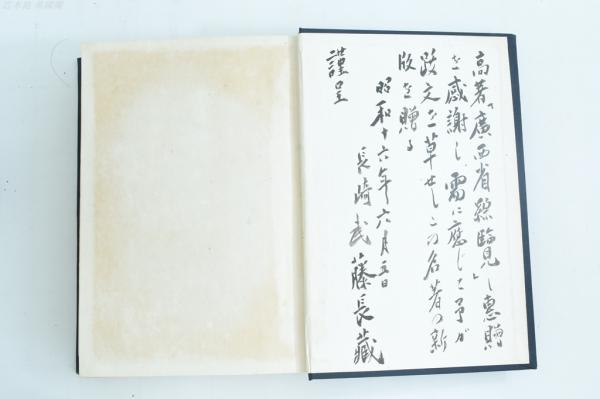 高著「廣西省綜覽」し惠贈
を感謝し、需に應じて予が
跋文を草せしこの名著の新
版を贈る
昭和十六年六月五日
長崎 武藤長藏
謹呈